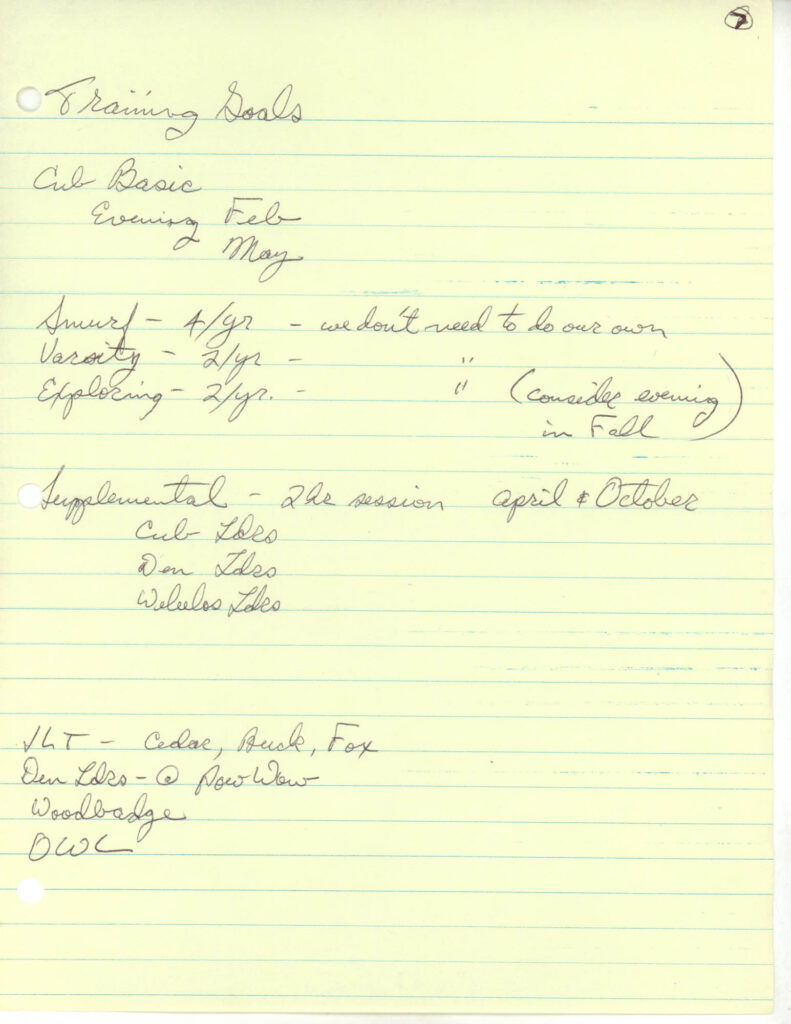 7
Training Goals
Cub Basic
Evening Feb
May
Smurf - 4/yr - we don't need to do our own
Varsity - 2/yr - "
Exploring - 2/yr. - " (consider evening
in Fall)
Supplemental - 2hr session April & October
Cub Ldrs
Den Ldrs
Webelos Ldrs
JLT - Cedar, Buck, Fox
Den Ldrs - @ PowWow
Woodbadge
OWL